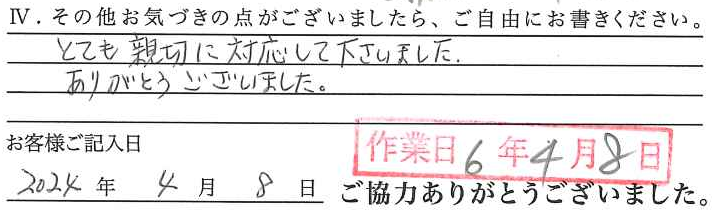 Ⅳ．その他お気づきの点がございましたら、ご自由にお書きください。
とても親切に対応して下さいました.
ありがとうございました。
お客様ご記入日
作業日6年4月8日
2024年4月8日
ご協力ありがとうございました。